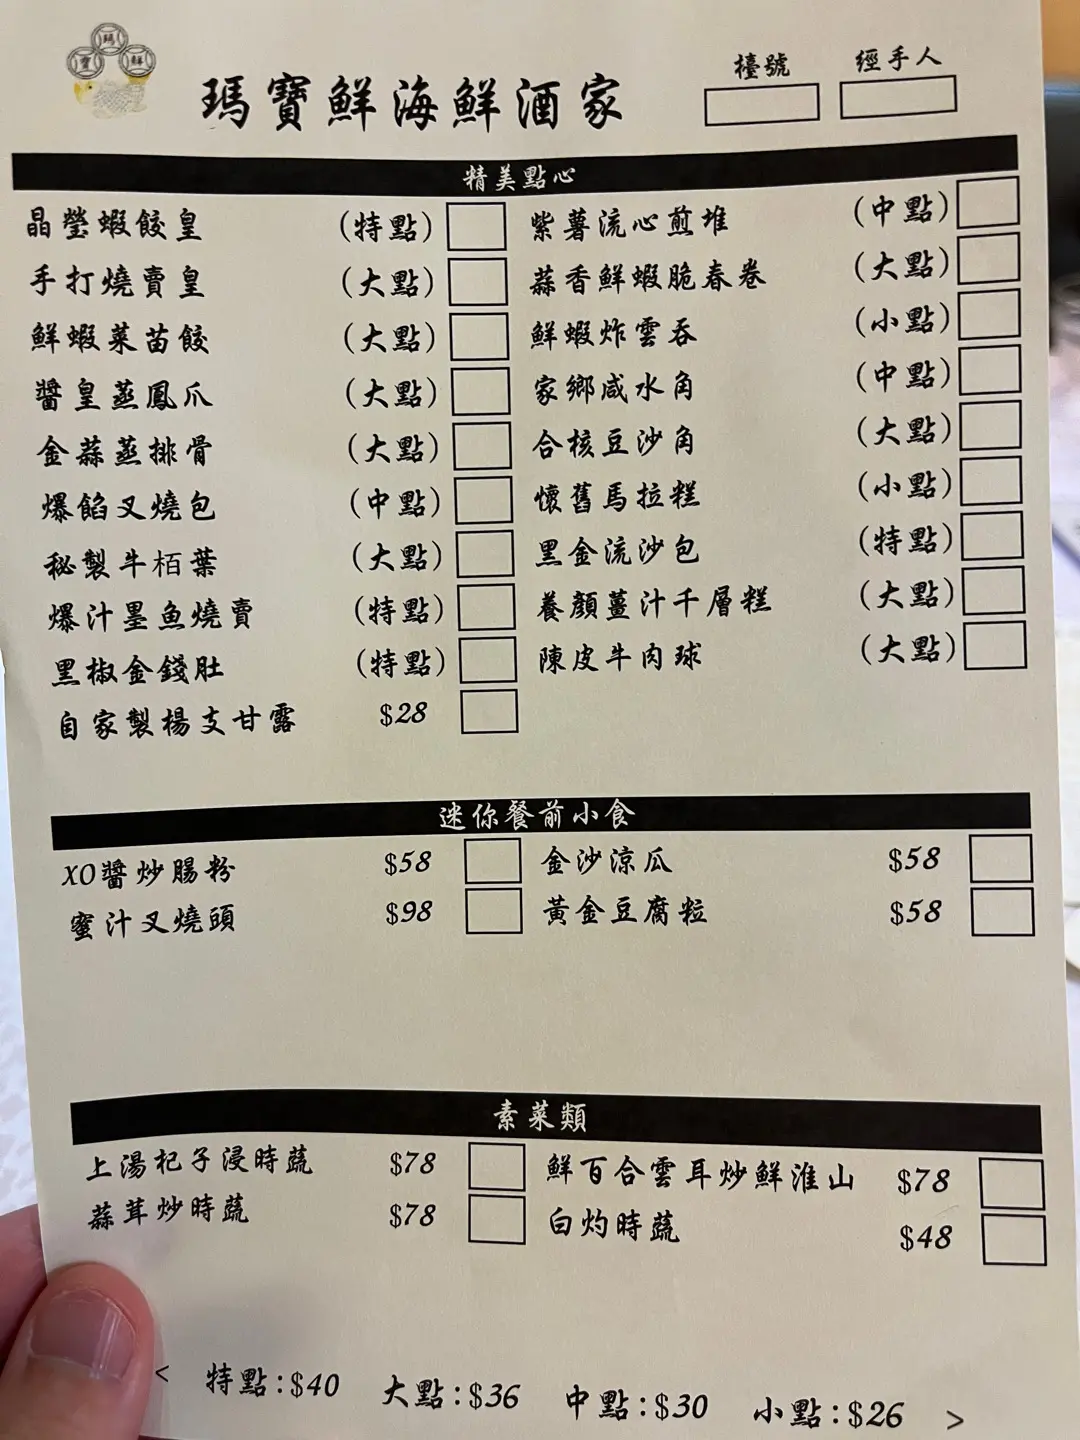 瑪 寶 鮮
瑪寶鮮海鮮酒家
檯號 經手人
精美點心
晶瑩蝦餃皇 (特點) 紫薯流心煎堆 (中點)
手打燒賣皇 (大點) 蒜香鮮蝦脆春卷 (大點)
鮮蝦菜苗餃 (大點) 鮮蝦炸雲吞 (小點)
醬皇蒸鳳爪 (大點) 家鄉咸水角 (中點)
金蒜蒸排骨 (大點) 合核豆沙角 (大點)
爆餡叉燒包 (中點) 懷舊馬拉糕 (小點)
秘製牛栢葉 (大點) 黑金流沙包 (特點)
爆汁墨魚燒賣 (特點) 養顏薑汁千層糕 (大點)
黑椒金錢肚 (特點) 陳皮牛肉球 (大點)
自家製楊支甘露 $28
迷你餐前小食
XO醬炒腸粉 $58 金沙涼瓜 $58
蜜汁叉燒頭 $98 黃金豆腐粒 $58
素菜類
上湯杞子浸時蔬 $78 鮮百合雲耳炒鮮淮山 $78
蒜茸炒時蔬 $78 白灼時蔬 $48
< 特點:$40 大點:$36 中點:$30 小點:$26 >